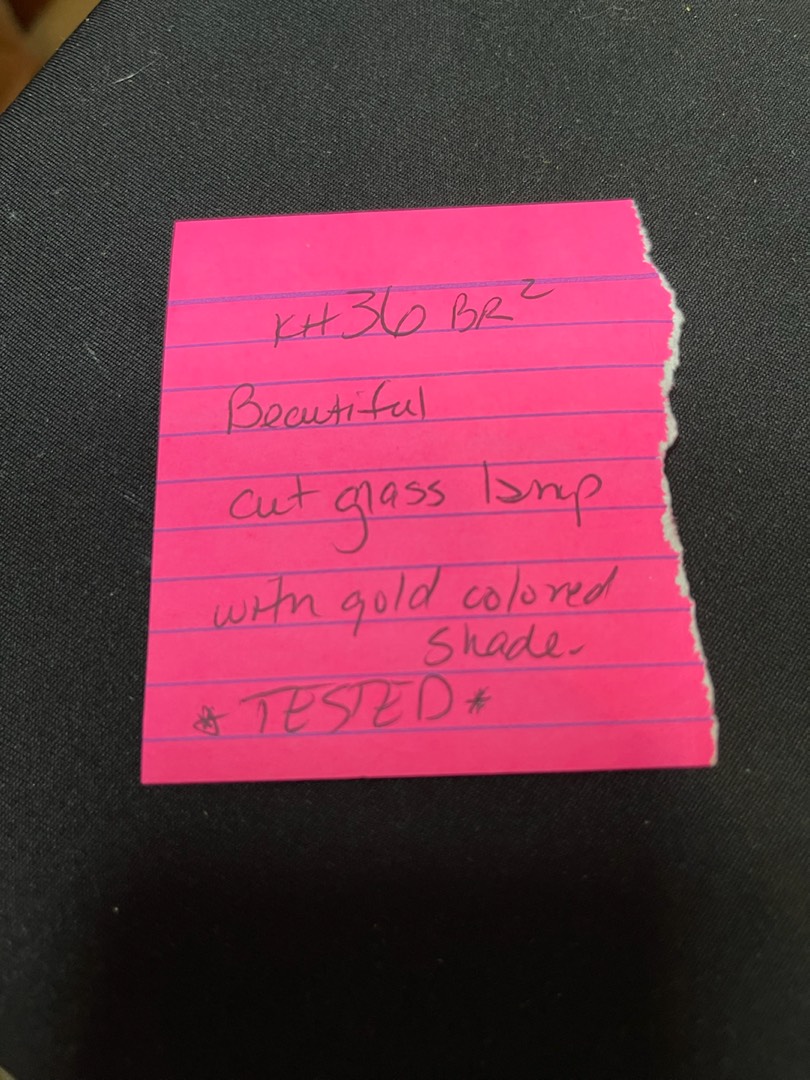 KH36 BR²
Beautiful
cut glass lamp
with gold colored
shade.
*TESTED*